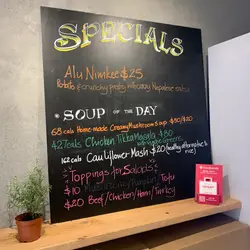 SPECIALS
Alu Nimkee $25
Potato & crunchy pastry w/ creamy Nepalese sauce
SOUP OF THE DAY
68 cals Home-made Creamy Mushroom soup $30/$20
427 cals Chicken Tikka Masala $80
w/
162 cal Cauliflower Mash $20 (healthy alternative to rice)
Toppings for Salads:
$10 Tofu
$20 Beef/Chicken/Ham/Turkey